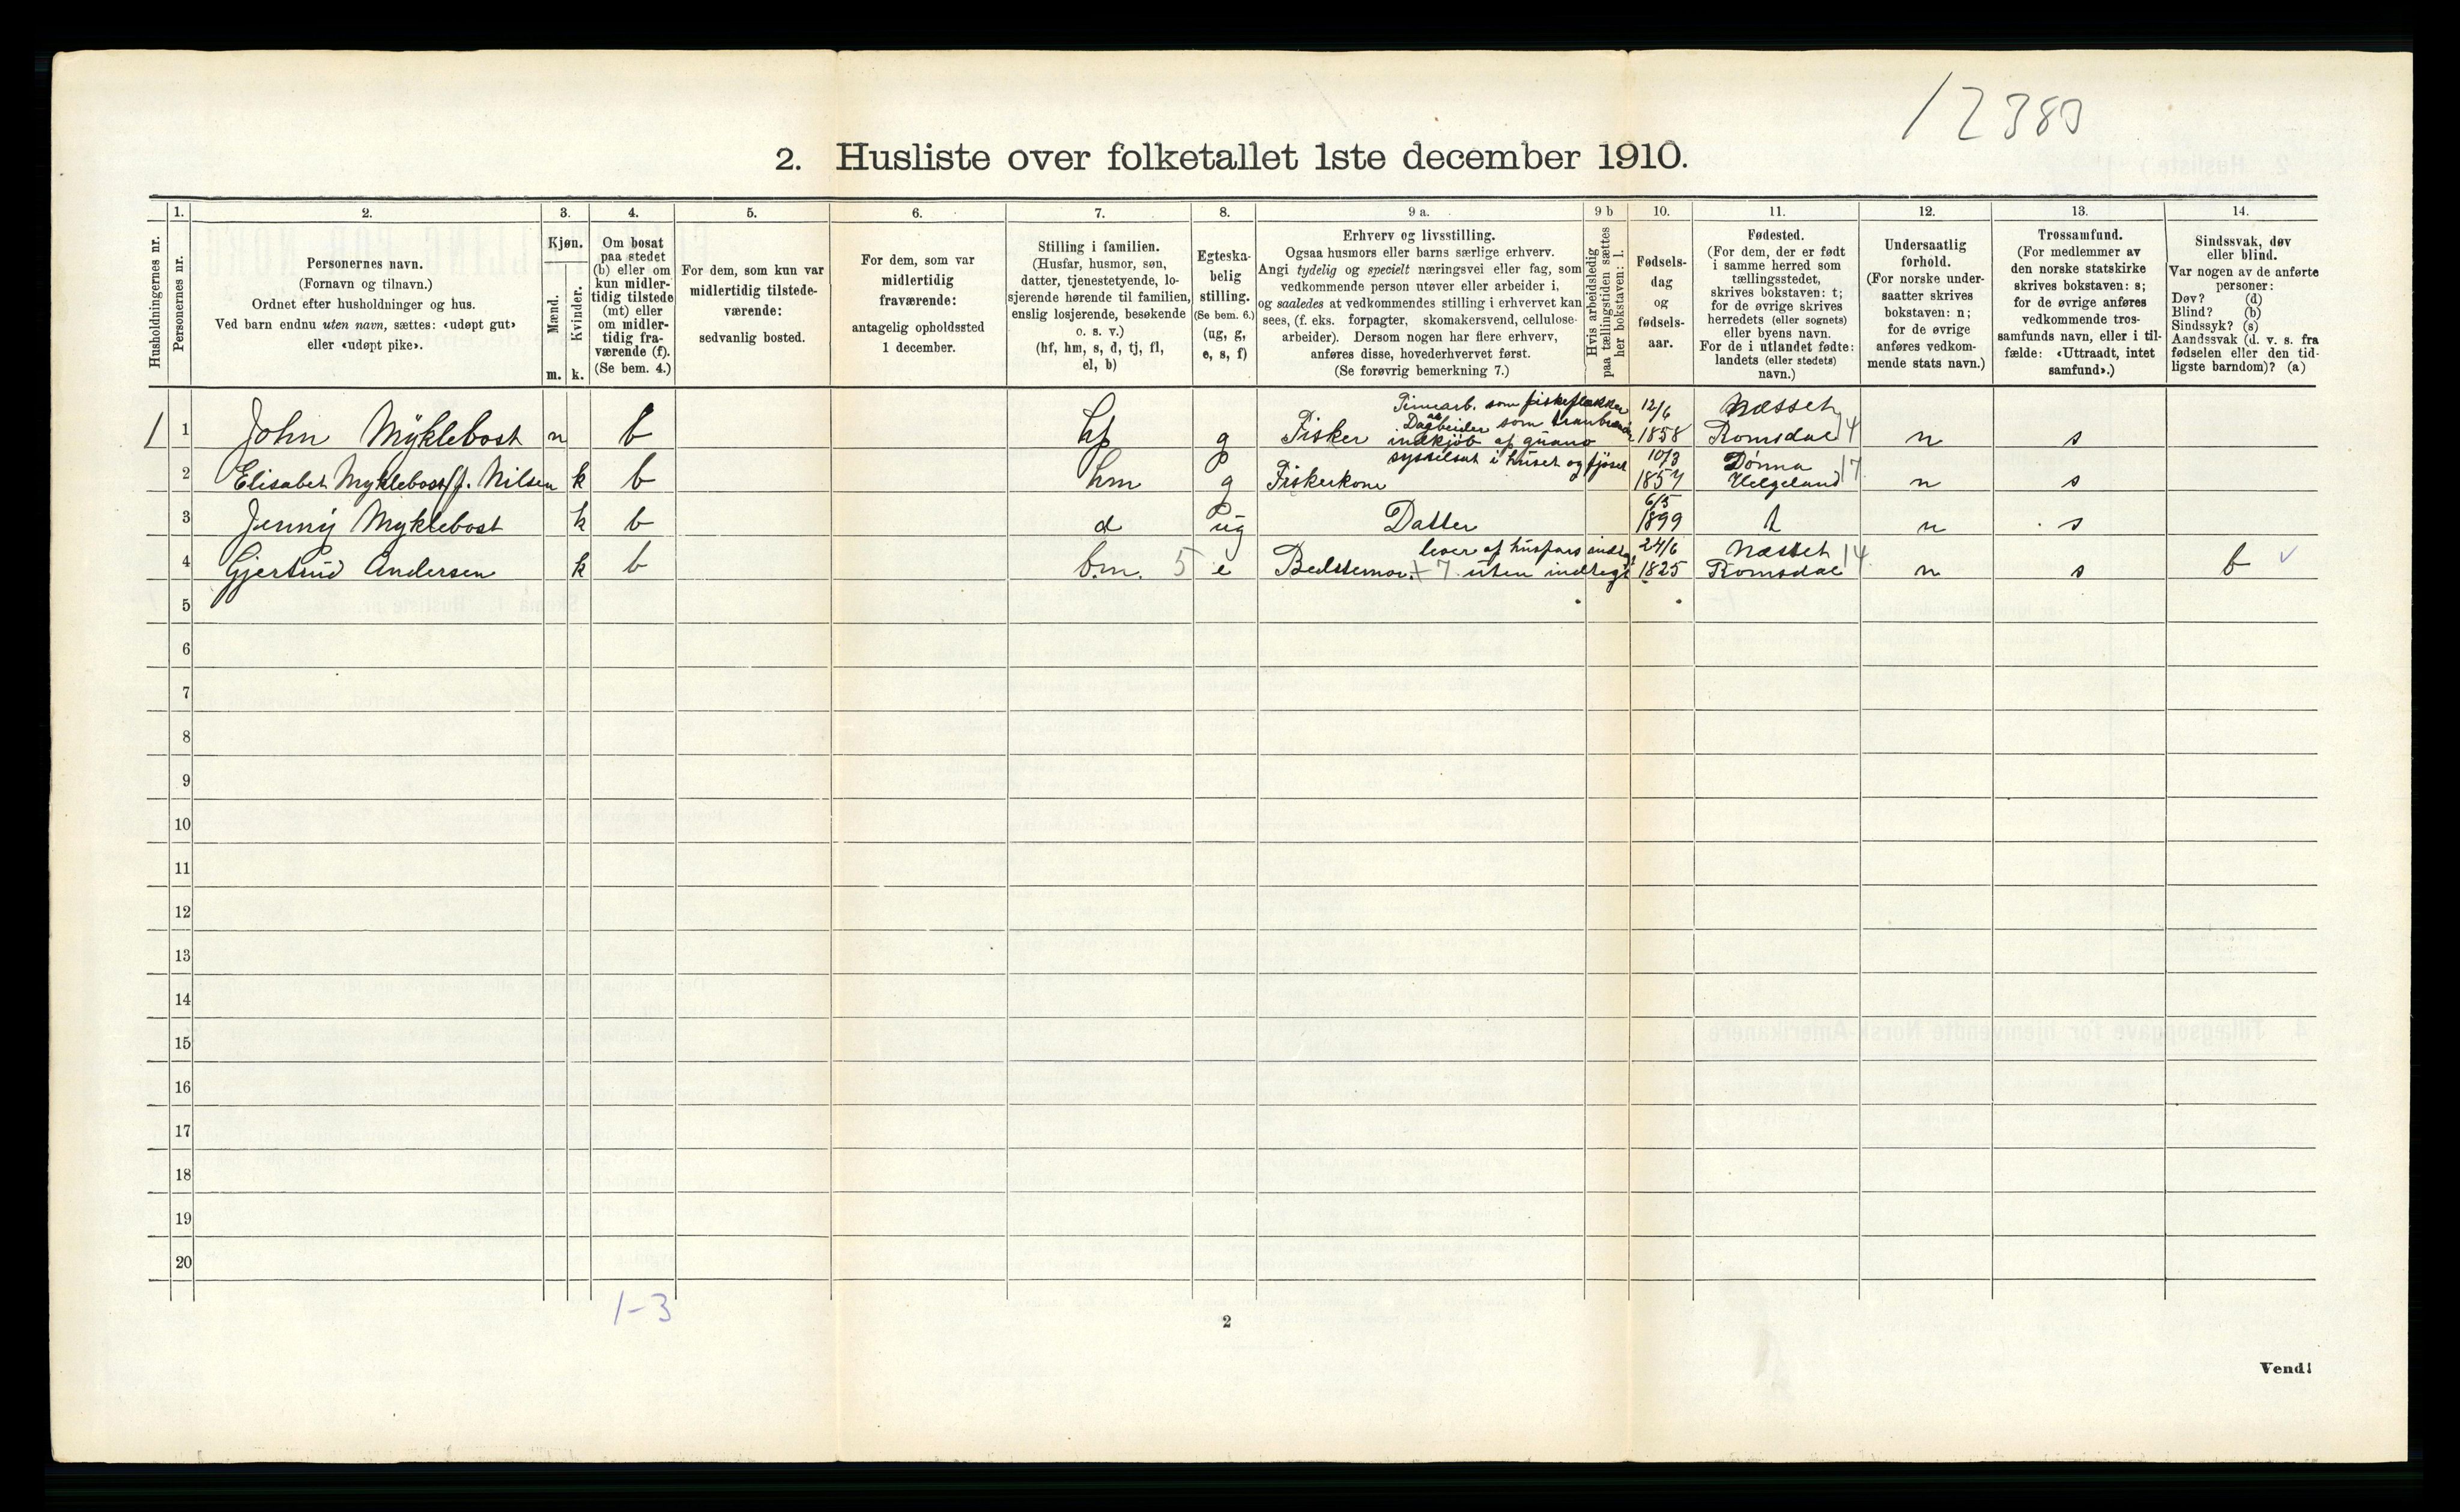 12380
2. Husliste over folketallet 1ste december 1910.
Husholdningernes nr.
1.
Personernes nr.
2.
Personernes navn.
(Fornavn og tilnavn.)
Ordnet efter husholdninger og hus.
Ved barn endnu uten navn, sættes: «udøpt gut»
eller «udøpt pike».
3.
Kjøn.
Mænd.
Kvinder.
m. k.
4.
Om bosat
paa stedet
(b) eller om
kun midler-
tidig tilstede
(mt) eller
om midler-
tidig fra-
værende (f).
(Se bem. 4.)
5.
For dem, som kun var
midlertidig tilstede-
værende:
sedvanlig bosted.
6.
For dem, som var
midlertidig
fraværende:
antagelig opholdssted
1 december.
7.
Stilling i familien.
(Husfar, husmor, søn,
datter, tjenestetyende, lo-
sjerende hørende til familien,
enslig losjerende, besøkende
o. s. v.)
(hf, hm, s, d, tj, fl,
el, b)
8.
Egteska-
belig
stilling.
(Se bem. 6.)
(ug, g,
e, s, f)
9 a.
Erhverv og livsstilling.
Ogsaa husmors eller barns særlige erhverv.
Angi tydelig og specielt næringsvei eller fag, som
vedkommende person utøver eller arbeider i,
og saaledes at vedkommendes stilling i erhvervet kan
sees, (f. eks. forpagter, skomakersvend, cellulose-
arbeider). Dersom nogen har flere erhverv,
anføres disse, hovederhvervet først.
(Se forøvrig bemerkning 7.)
9 b
Hvis arbeidsledig
paa tællingstiden sættes
her bokstaven: l.
10.
Fødsels-
dag
og
fødsels-
aar.
11.
Fødested.
(For dem, der er født
i samme herred som
tællingsstedet,
skrives bokstaven: t;
for de øvrige skrives
herredets (eller sognets)
eller byens navn.
For de i utlandet fødte:
landets (eller stedets)
navn.)
12.
Undersaatlig
forhold.
(For norske under-
saatter skrives
bokstaven: n;
for de øvrige
anføres vedkom-
mende stats navn.)
13.
Trossamfund.
(For medlemmer av
den norske statskirke
skrives bokstaven: s;
for de øvrige anføres
vedkommende tros-
samfunds navn, eller i til-
fælde: «Uttraadt, intet
samfund».)
14.
Sindssvak, døv
eller blind.
Var nogen av de anførte
personer:
Døv? (d)
Blind? (b)
Sindssyk? (s)
Aandssvak (d. v. s. fra
fødselen eller den tid-
ligste barndom)? (a)
som fiskeflækker 12/6 Næsset
som tranbrænder
1 1 John Myklebost b hf g Fisker indkjøb af guano 1858 Romsdal 14 n s
sysselsat i huset og fjøset 10/3 Dønna
2 Elisabet Myklebost f. Nilsen k b hm g Fiskerkone 1857 Helgeland 17 n s
6/5
3 Jenny Myklebost k b d ug Datter 1899 t n s
lever af husfars indtægt 24/6 Næsset
4 Gjertrud Andersen k b b.m. 5 e Bedstemor + 7 uten indtægt 1825 Romsdal 14 n s b ✓
5
6
7
8
9
10
11
12
13
14
15
16
17
18
19
20
1-3
2
Vend!